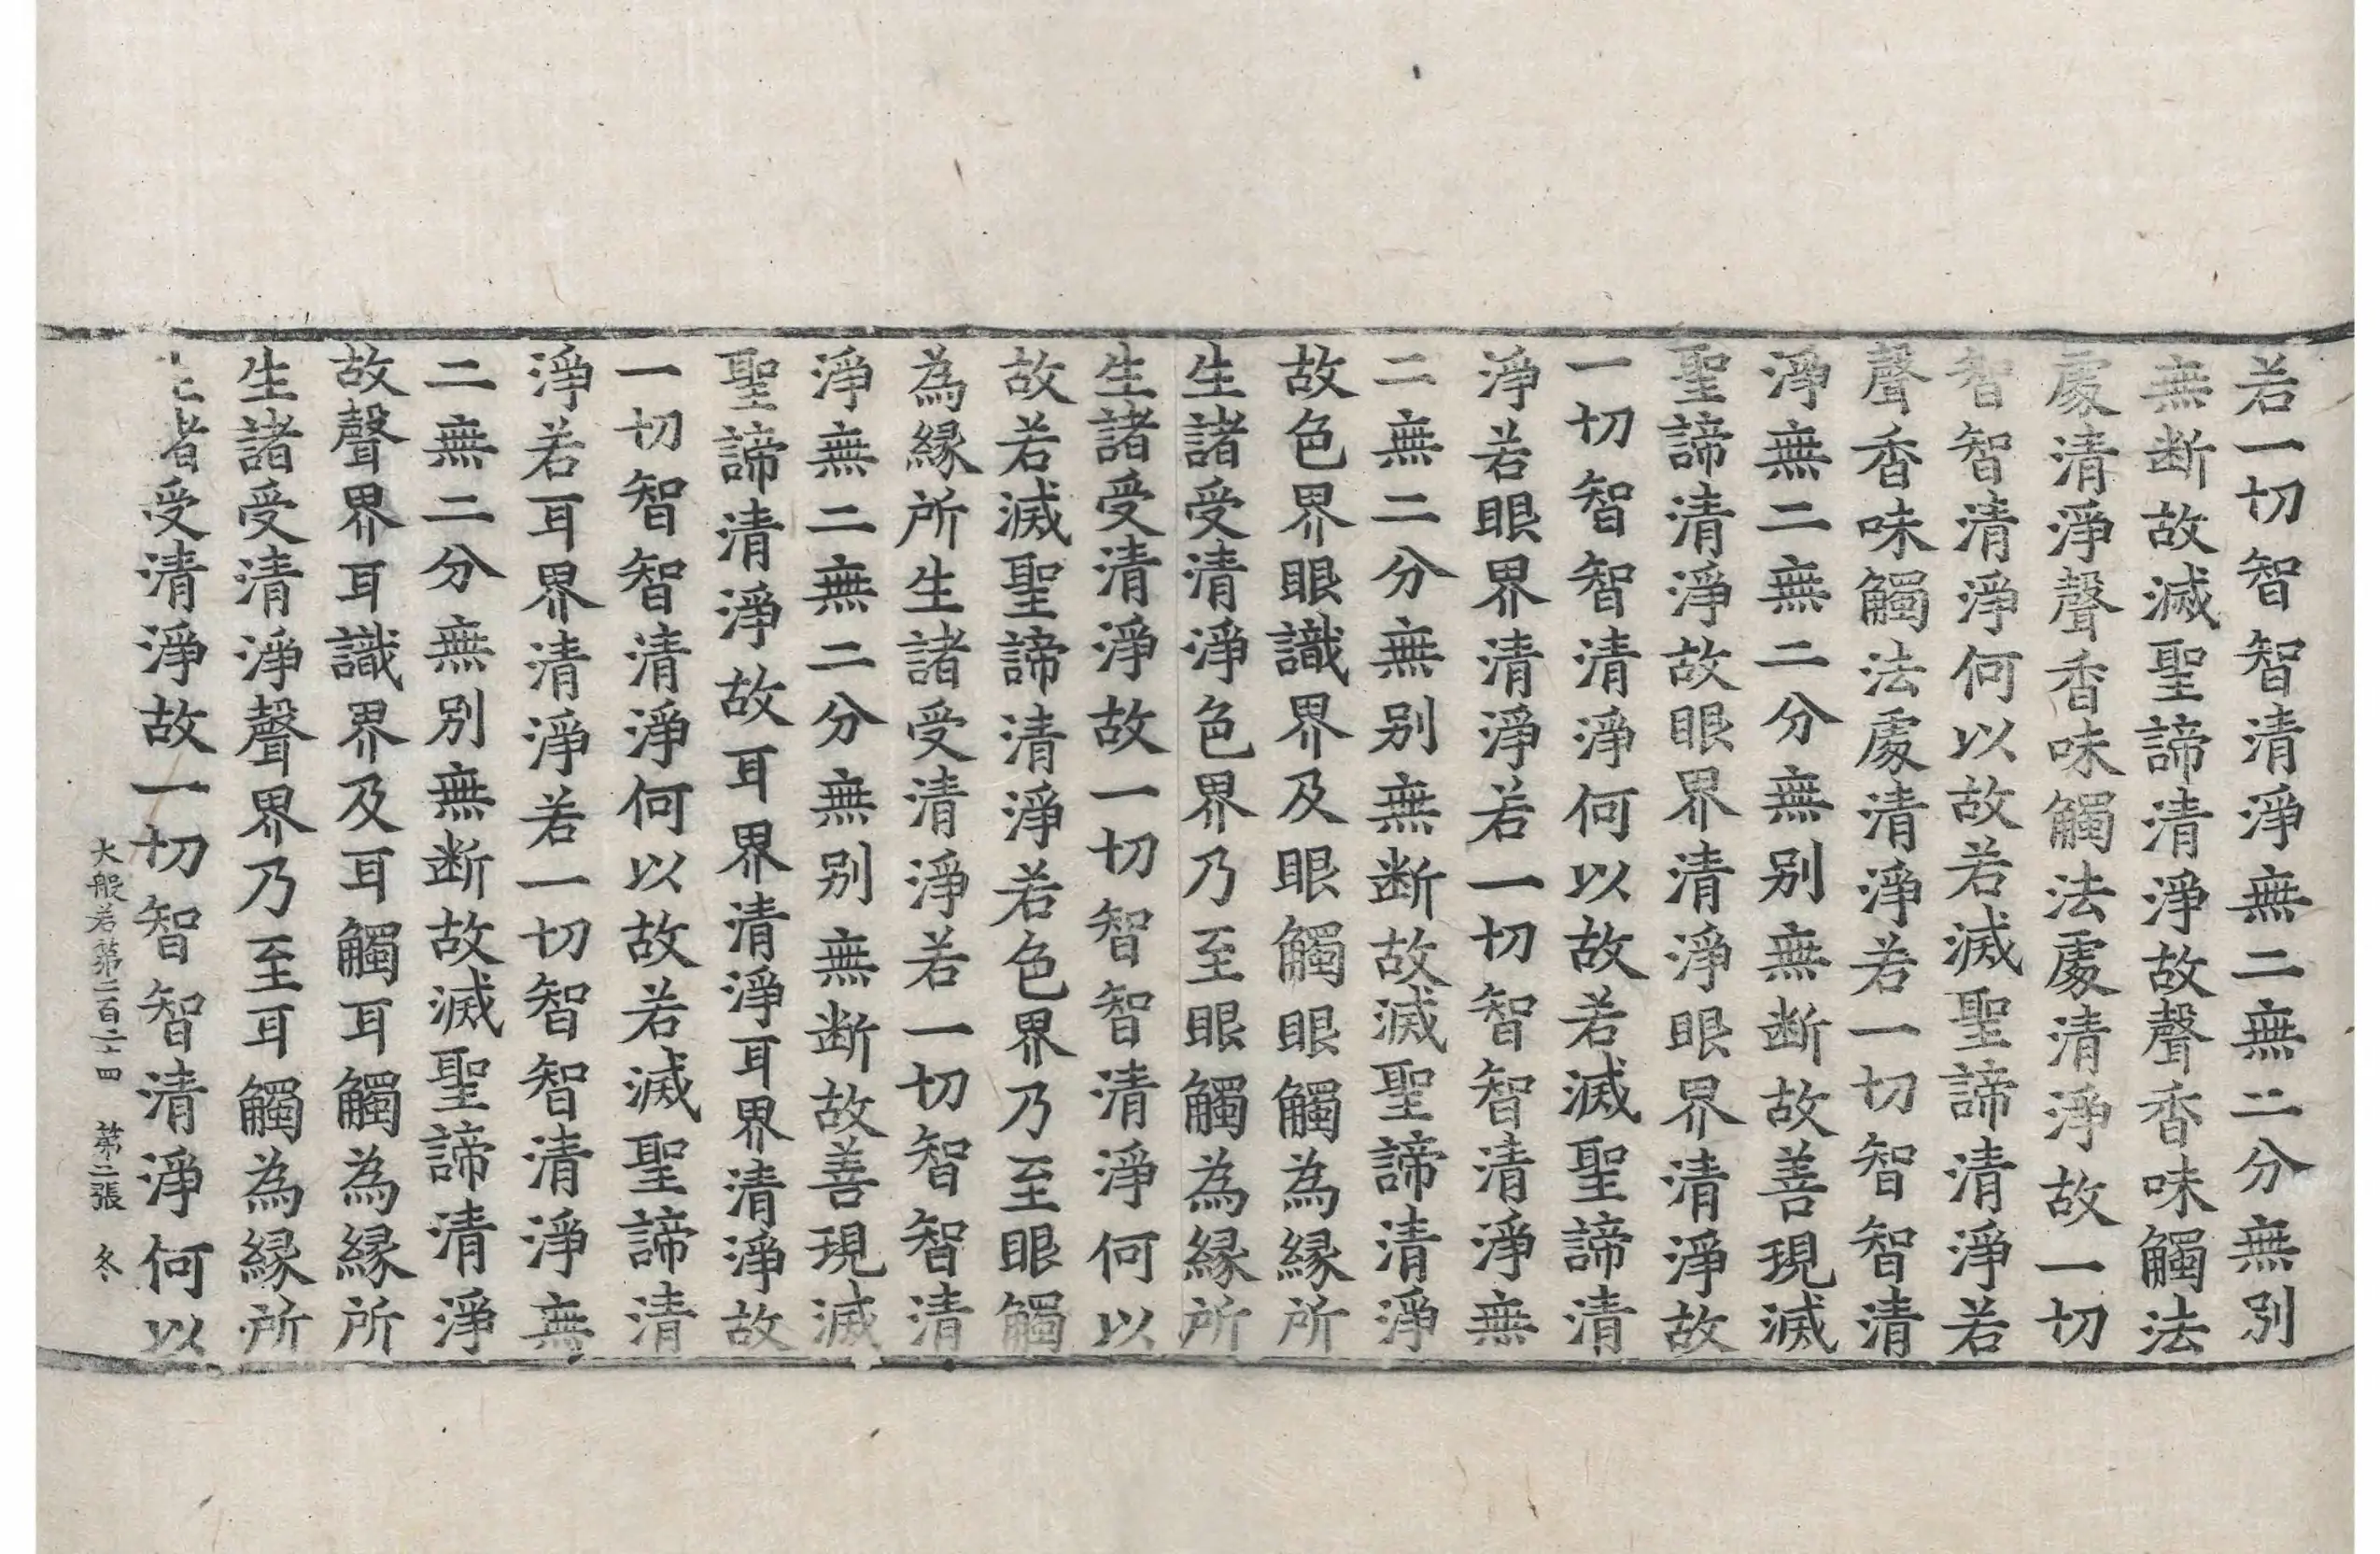 若一切智智清淨無二無二分無別
無断故滅聖諦清淨故聲香味觸法
處清淨聲香味觸法處清淨故一切
智智清淨何以故若滅聖諦清淨若
聲香味觸法處清淨若一切智智清
淨無二無二分無別無断故善現滅
聖諦清淨故眼界清淨眼界清淨故
一切智智清淨何以故若滅聖諦清
淨若眼界清淨若一切智智清淨無
二無二分無別無断故滅聖諦清淨
故色界眼識界及眼觸眼觸為縁所
生諸受清淨色界乃至眼觸為縁所
生諸受清淨故一切智智清淨何以
故若滅聖諦清淨若色界乃至眼觸
為縁所生諸受清淨若一切智智清
淨無二無二分無別無断故善現滅
聖諦清淨故耳界清淨耳界清淨故
一切智智清淨何以故若滅聖諦清
淨若耳界清淨若一切智智清淨無
二無二分無別無断故滅聖諦清淨
故聲界耳識界及耳觸耳觸為縁所
生諸受清淨聲界乃至耳觸為縁所
生諸受清淨故一切智智清淨何以
大般若第二百二十四 第二張 冬